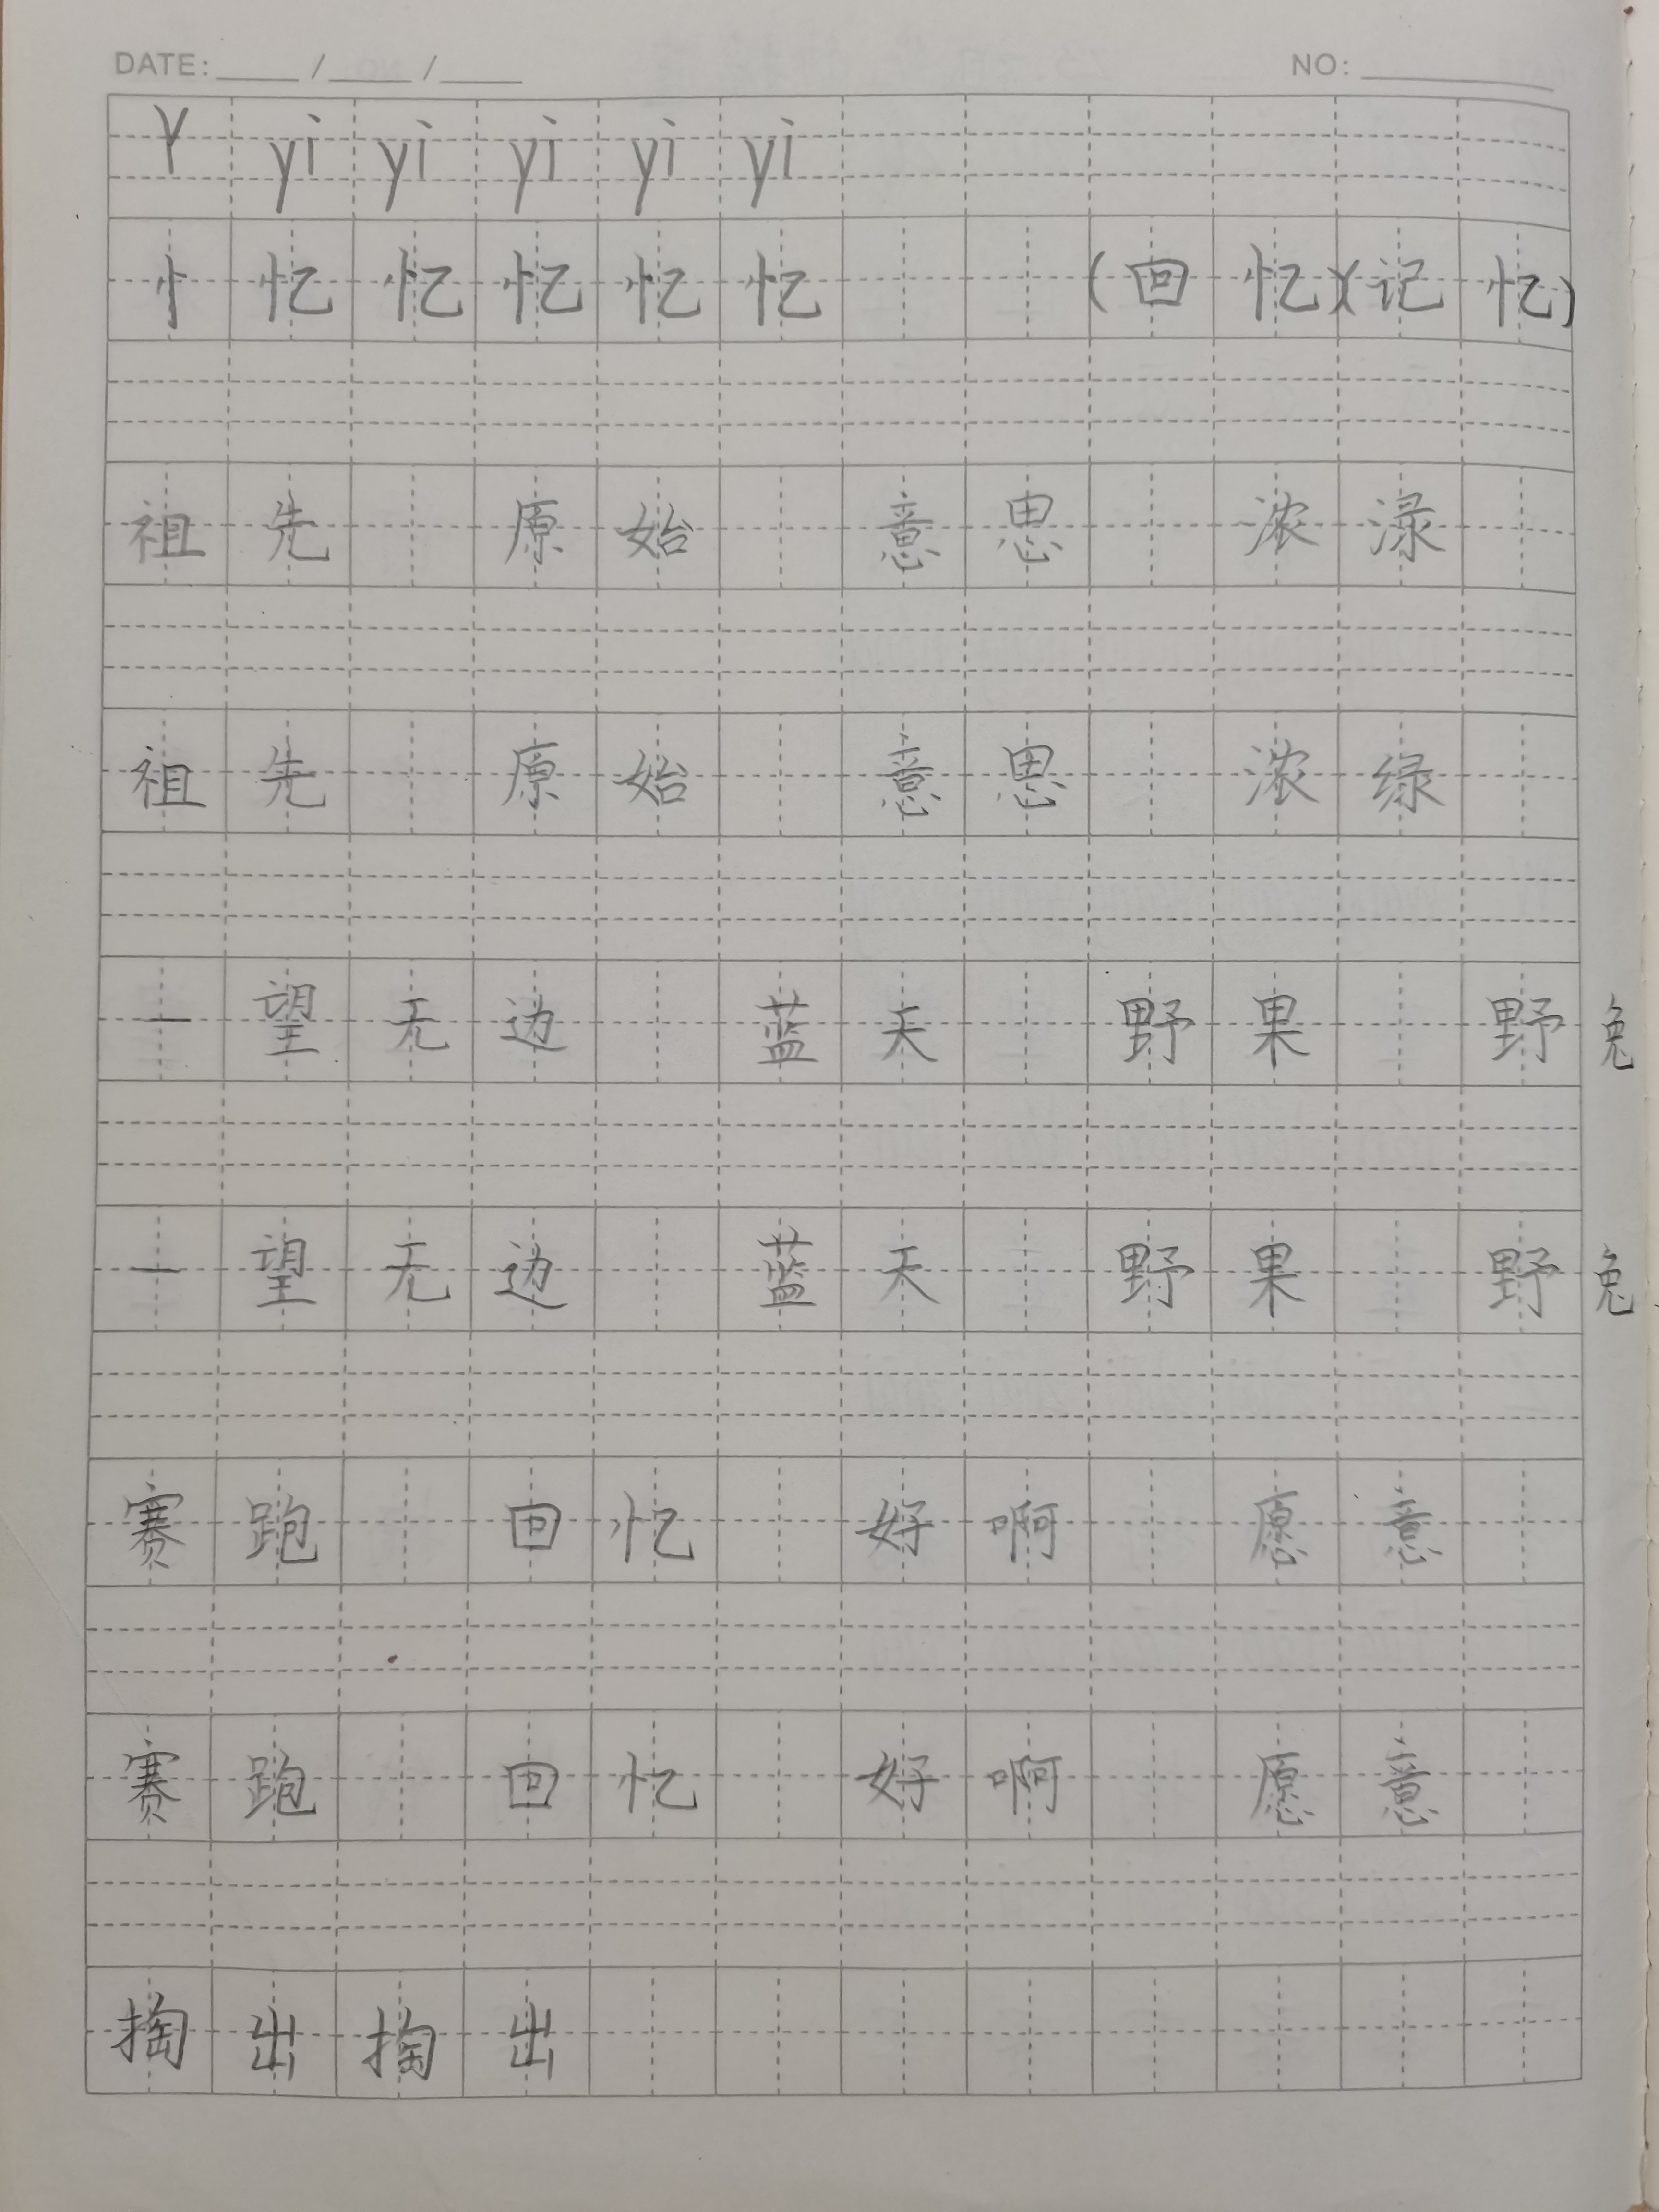 DATE: / / NO:
Y yì yì yì yì yì
忄 忆 忆 忆 忆 忆 (回忆)(记忆)
祖先 原始 意思 浓渌
祖先 原始 意思 浓绿
一望无边 蓝天 野果 野兔
一望无边 蓝天 野果 野兔
赛跑 回忆 好啊 愿意
赛跑 回忆 好啊 愿意
掏出掏出